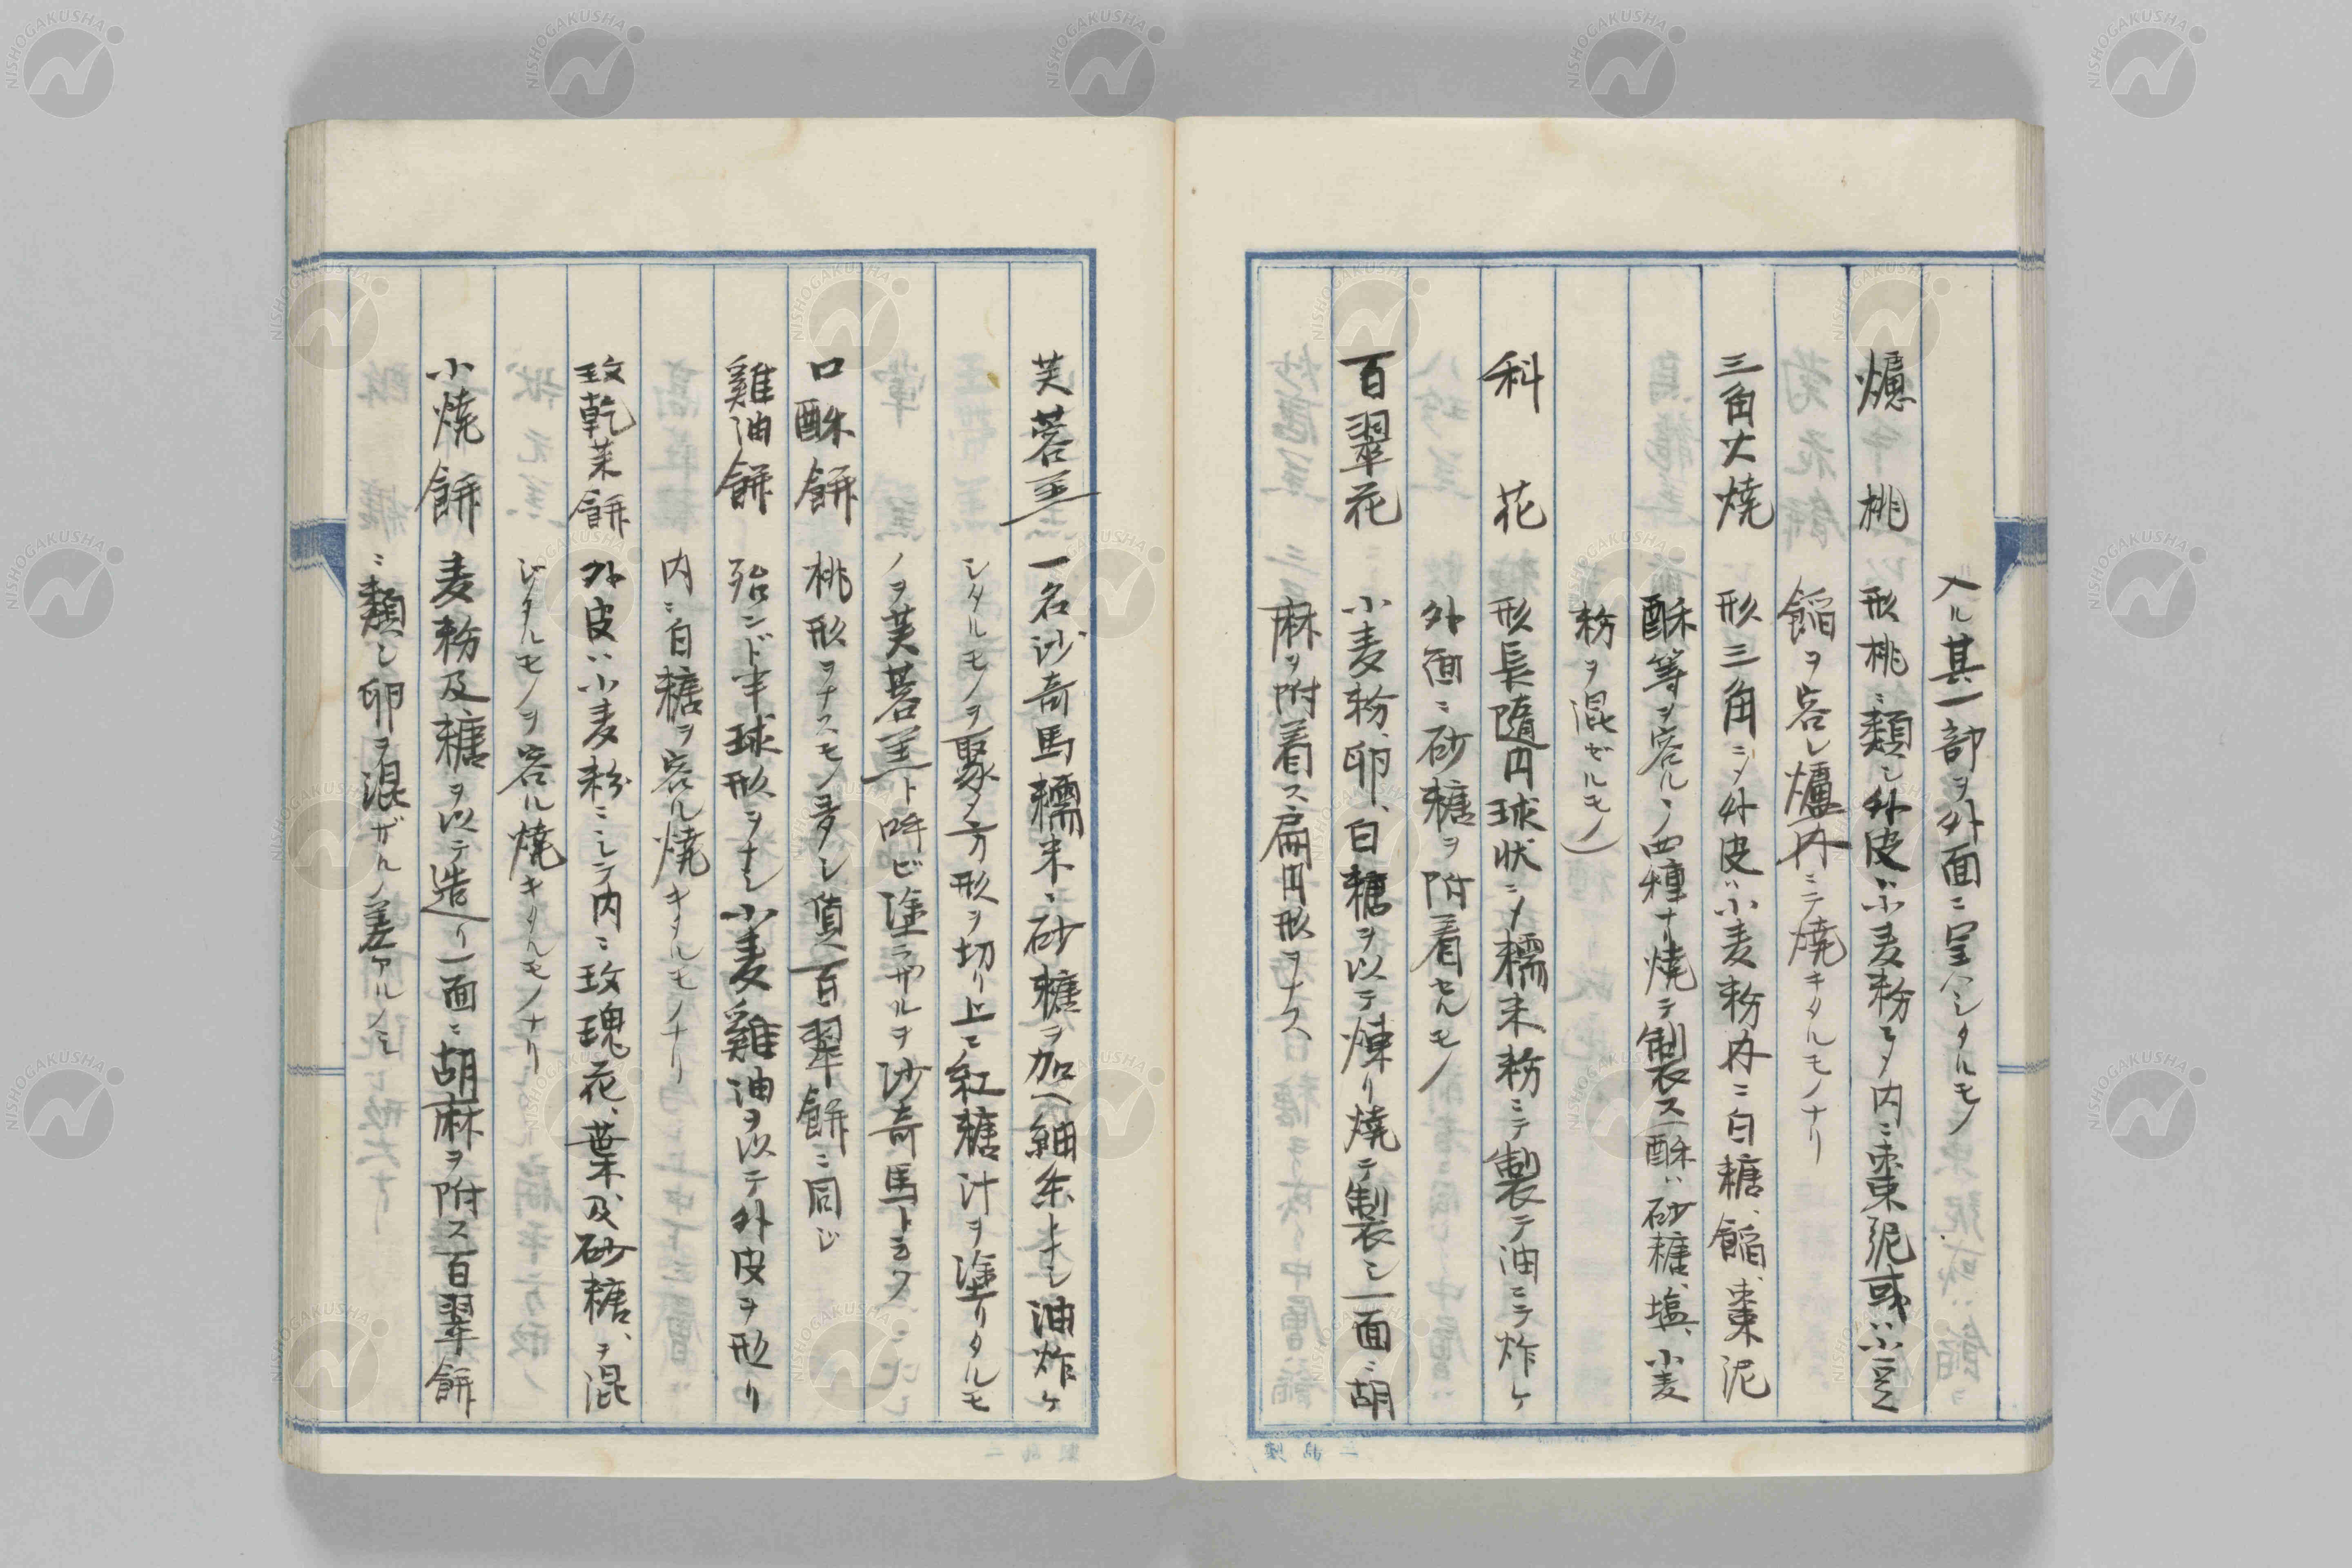 入ル其一部ヲ外面ニ呈ハシタルモノ
爐桃 形桃ニ類シ外皮ハ小麦粉ニシメ内ニ棗泥或ハ小豆
餡ヲ容レ爐内ニテ焼キタルモノナリ
三角火焼 形三角ニシメ外皮ハ小麦粉内ニ白糖、餡、棗泥
酥等ヲ容ルヽノ四種ナリ焼テ製ス酥ハ砂糖、塩、小麦
粉ヲ混ゼルモノ
科花 形長隋円球状ニシメ糯米粉ニテ製テ油ニテ炸ケ
外面ニ砂糖ヲ附着セルモノ
百翠花 小麦粉、卵、白糖ヲ以テ煉リ焼テ製シ一面ニ胡
麻ヲ附着ス扁円形ヲナス
芙蓉羔 一名沙奇馬糯米ニ砂糖ヲ加ヘ細糸トナシ油炸ケ
シタルモノヲ聚メ方形ヲ切リ上ニ紅糖汁ヲ塗リタルモ
ノヲ芙蓉羔ト呼ビ塗ラザルヲ沙奇馬ト云フ
口酥餅 桃形ヲナスモノ多シ質百翠餅ニ同ジ
雞油餅 殆ンド半球形ヲナシ小麦雞油ヲ以テ外皮ヲ形リ
内ニ白糖ヲ容ル焼キタルモノナリ
玫乾菓餅 外皮ハ小麦粉ニシテ内ニ玫瑰花、葉及砂糖、ヲ混
ジタルモノヲ容ル焼キタルモノナリ
小焼餅 麦粉及糖ヲ以テ造リ一面ニ胡麻ヲ附ス百翠餅
ニ類シ卵ヲ混ザルノ差アルノミ
NISHOGAKUSHA